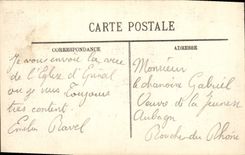 CARTE POSTALE
CORRESPONDANCE
ADRESSE
Je vous envoie la vue
de l'Eglise d'
où je suis Toujours
très content.
Emilien Ravel
Monsieur
le chanoine Gabriel
Œuvre de la Jeunesse
Aubagne
Bouches du Rhône